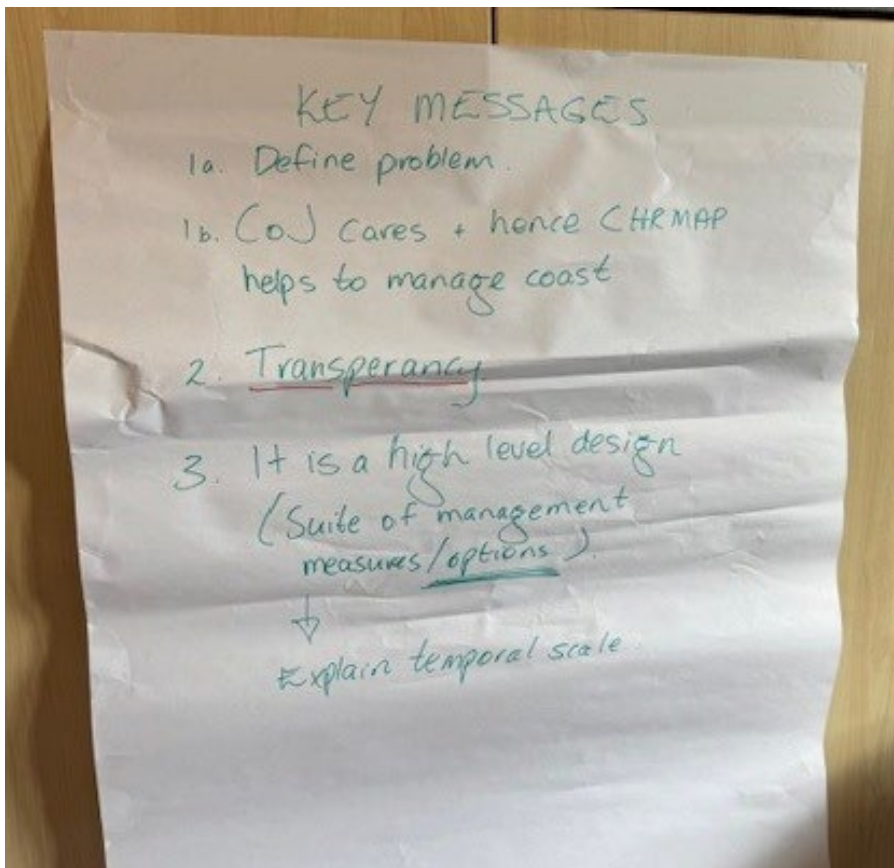 KEY MESSAGES
1a. Define problem.
1b. CoJ cares + hence CHRMAP
helps to manage coast
2. Transperancy
3. It is a high level design
(Suite of management
measures/options).
↓
Explain temporal scale.